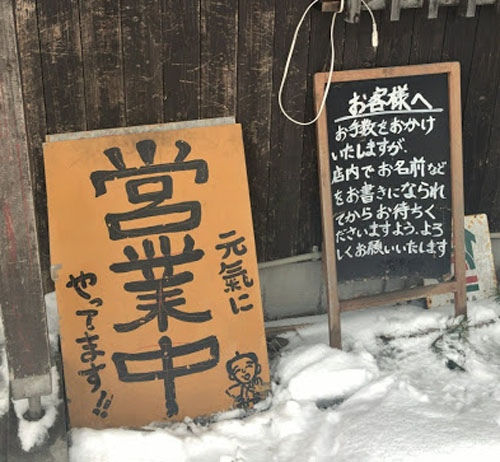 元氣に
営業中
やってます!!
お客様へ
お手数をおかけ
いたしますが、
店内でお名前など
をお書きになられ
てからお待ちく
ださいますよう、よろ
しくお願いいたします